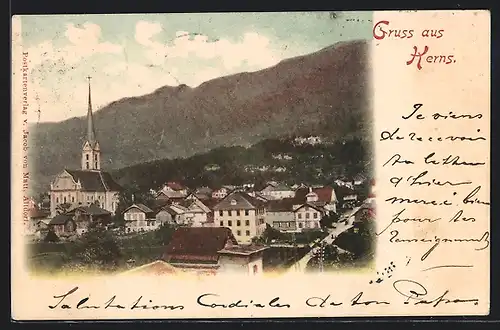 Gruss aus
Kerns.
Postkartenverlag v. Jacob von Matt, Altdorf
Je viens
de recevoir
ta lettre
d'hier
merci bien
pour tes
renseignements
Salutations Cordiales de ton